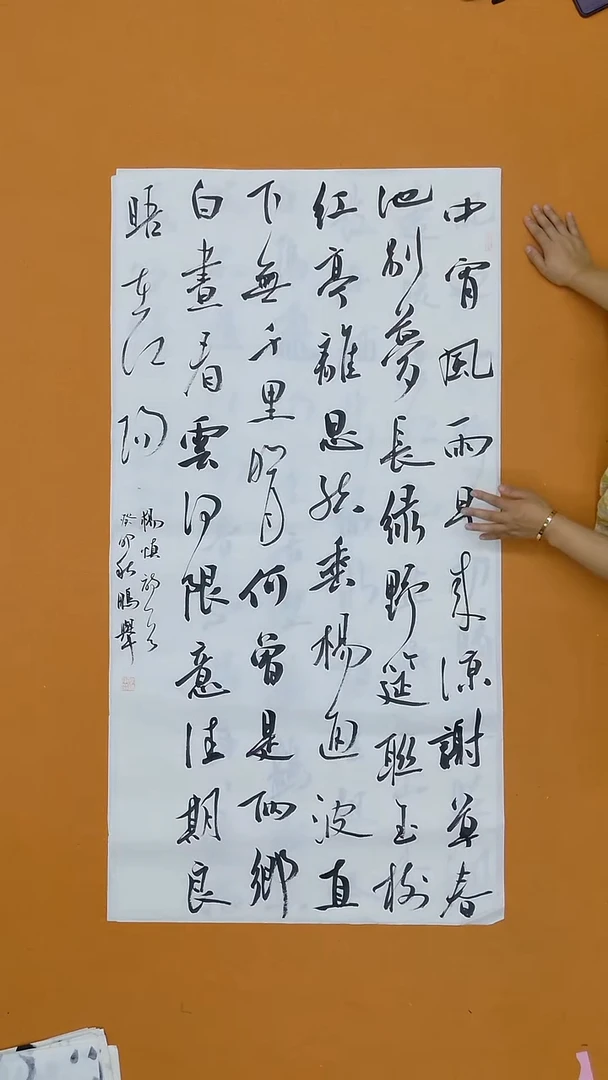 中宵風雨來涼謝草春
池別夢長緑野筵聯玉樹
紅亭離思垂楊迴波直
下無千里明月何曾是兩鄉
白晝看雲何限意佳期良
晤在江陽
楊慎詩一首
癸卯秋鵬舉